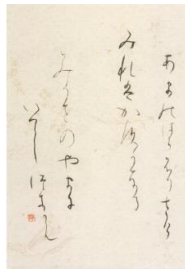 あまのはらふりさけ
みればかすかなる
みかさのやまに
いでしつきかも